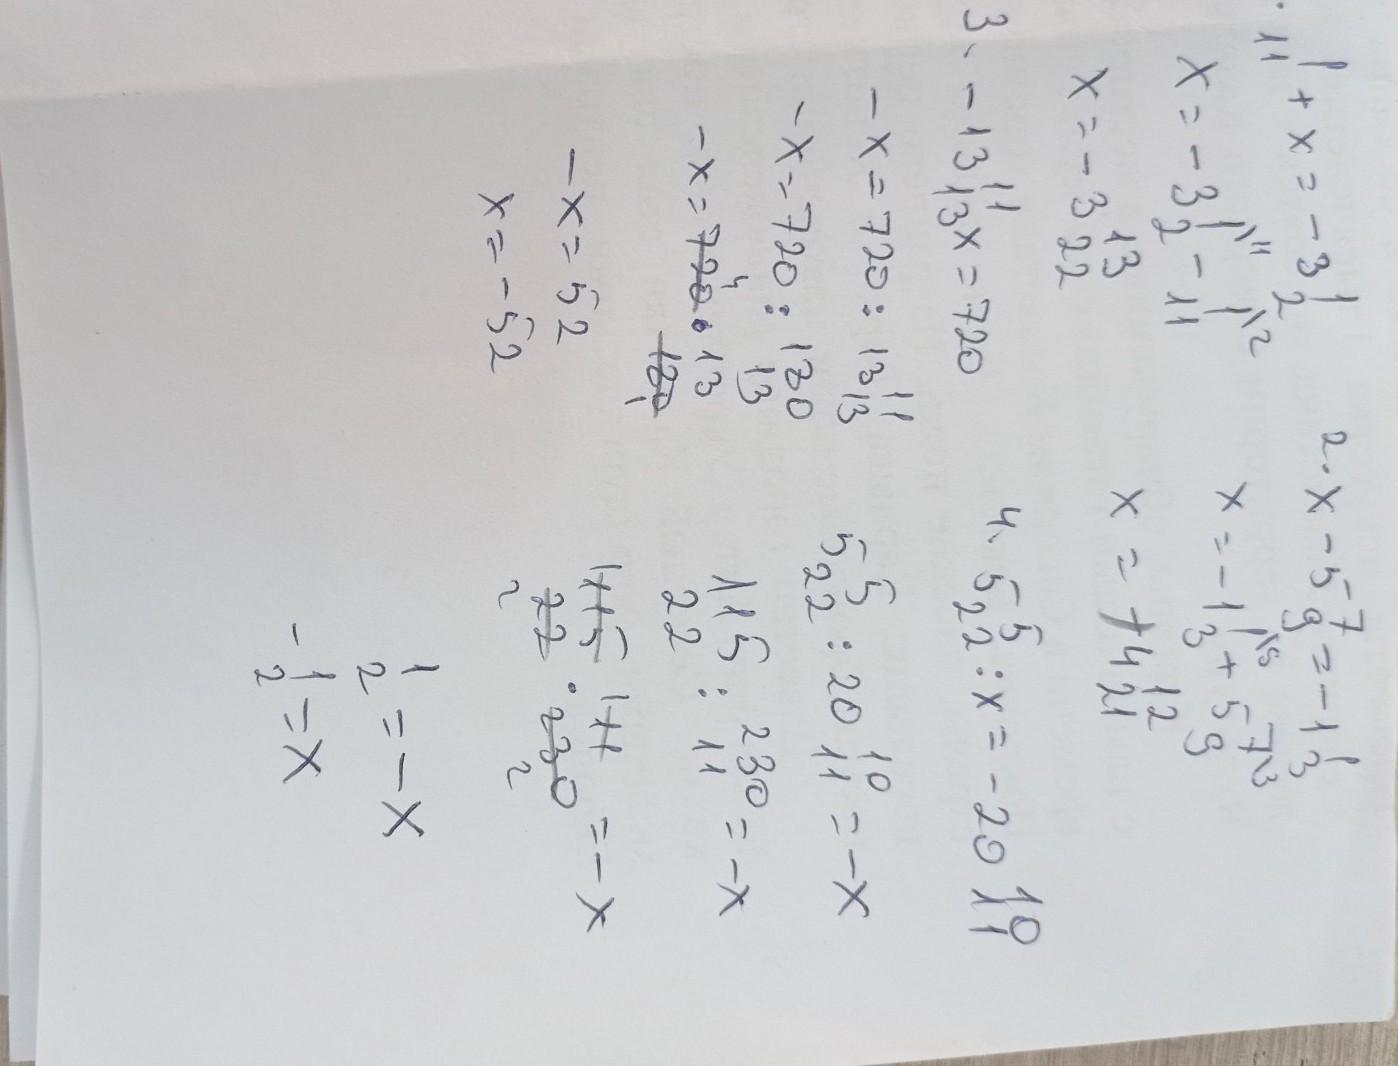 1/11 + x = -3 1/2
x = -3 1/2 \11 - 1/11 \2
x = -3 13/22
2. x - 5 7/9 = -1 1/3
x = -1 1/3 + 5 7/9 \3
x = +4 12/21
3. -13 11/13 x = 720
-x = 720 : 13 11/13
-x = 720 : 180/13
-x = 720 4 · 13/180 1
-x = 52
x = -52
4. 5 5/22 : x = -20 10/11
5 5/22 : 20 10/11 = -x
115/22 : 230/11 = -x
1 115/22 2 · 1 11/230 2 = -x
1/2 = -x
-1/2 = x